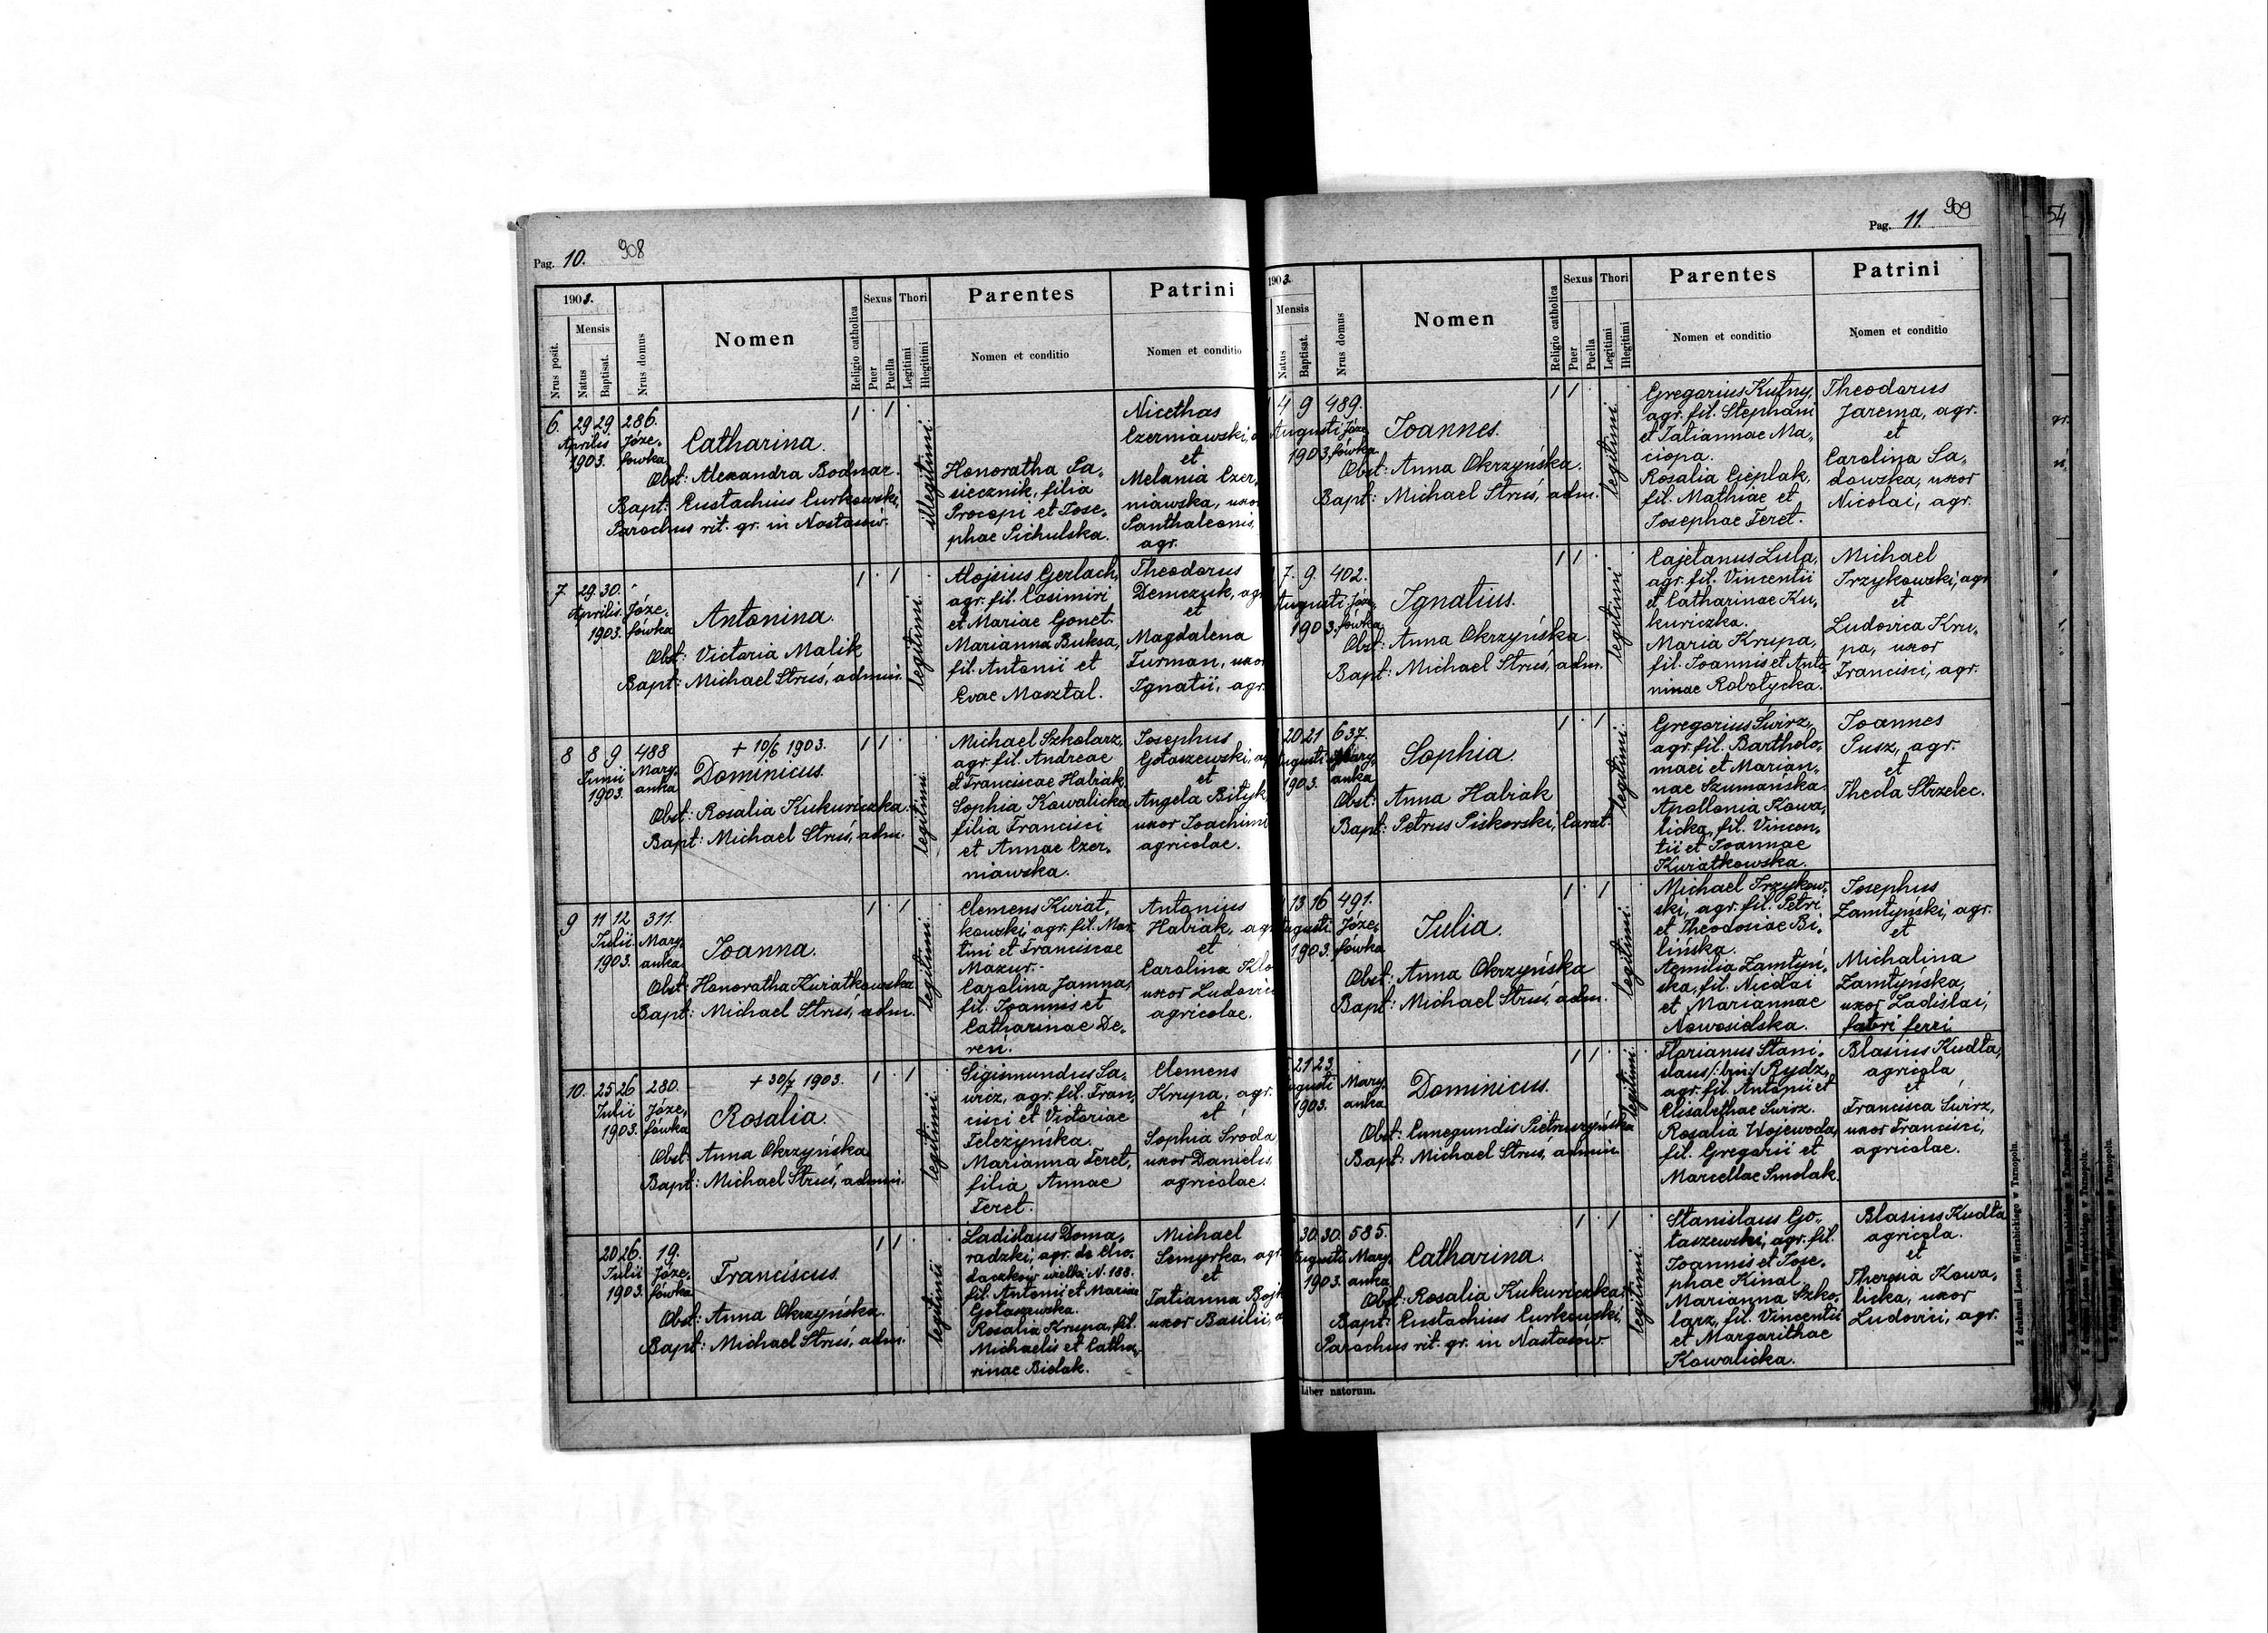 Pag. 10. 908
1903.
Sexus
Thori
Parentes
Patrini
Mensis
Nrus posit.
Natus
Baptisat.
Nrus domus
Nomen
Religio catholica
Puer
Puella
Legitimi
Illegitimi
Nomen et conditio
Nomen et conditio
6. 29 29. 286.
Aprilis Józe-
1903. fówka
Catharina.
Obst: Alexandra Bodnar.
Bapt: Eustachius Curkowski,
Parochus rit. gr. in Nastasów.
illegitimi
Honoratha Pa-
siecznik, filia
Procopi et Jose-
phae Pichulska.
Nicethas
Czerniawski,
et
Melania Czer-
niawska, uxor
Panthaleonis,
agr.
7 29. 30.
Aprilis. Józe-
1903. fówka
Antonina.
Obst: Victoria Malik
Bapt: Michael Struś, admin.
legitimi
Alojsius Gerlach,
agr. fil. Casimiri
et Mariae Gonet.
Marianna Buksa,
fil. Antonii et
Evae Masztal.
Theodorus
Demczuk, agr
et
Magdalena
Furman, uxor
Ignatii, agr.
8 8 9 488
Junii Mary-
1903. anka
+ 10/6 1903.
Dominicus.
Obst: Rosalia Kukuriczka.
Bapt: Michael Struś, adm.
legitimi
Michael Szkolarz,
agr. fil. Andreae
et Franciscae Habiak.
Sophia Kowalicka,
filia Francisci
et Annae Czer-
niawska.
Josephus
Gołaszewski, ag
et
Angela Bityk,
uxor Joachimi
agricolae.
9 11 12 311.
Julii. Mary-
1903. anka
Joanna.
Obst: Honoratha Kwiatkowska
Bapt: Michael Struś, adm.
legitimi
Clemens Kwiat-
kowski, agr. fil. Mar-
tini et Franciscae
Mazur.
Carolina Jamna,
fil. Joannis et
Catharinae De-
reń.
Antonius
Habiak, ag
et
Carolina Kło
uxor Ludovici
agricolae.
10. 25 26 280.
Julii Józe-
1903. fówka
+ 30/7 1903.
Rosalia.
Obst: Anna Okrzyńska
Bapt: Michael Struś, admin.
legitimi
Sigismundus Sa-
wicz, agr. fil. Fran-
cisci et Victoriae
Felczyńska.
Marianna Feret,
filia Annae
Feret.
Clemens
Krupa, agr.
et
Sophia Środa
uxor Danielis
agricolae.
20 26. 19.
Julii Józe-
1903. fówka
Franciscus.
Obst: Anna Okrzyńska.
Bapt: Michael Struś, adm.
legitimi
Ladislaus Doma-
radzki, agr. de Cho-
daczków wielki N. 188.
fil. Antonii et Mariae
Gołaszewska.
Rosalia Krupa, fil.
Michaelis et Catha-
rinae Bielak.
Michael
Semyrka, agr
et
Tatianna Boj
uxor Basilii,
Pag. 11. 909
1903.
Sexus
Thori
Parentes
Patrini
Mensis
Natus
Baptisat.
Nrus domus
Nomen
Religio catholica
Puer
Puella
Legitimi
Illegitimi
Nomen et conditio
Nomen et conditio
4 9 489.
Augusti Józe-
1903. fówka
Joannes.
Obst: Anna Okrzyńska.
Bapt: Michael Struś, adm.
legitimi
Gregorius Kutny,
agr. fil. Stephani
et Tatiannae Ma-
ciopa.
Rosalia Cieplak,
fil. Mathiae et
Josephae Feret.
Theodorus
Jarema, agr.
et
Carolina Sa-
dowska, uxor
Nicolai, agr.
7. 9. 402.
Augusti Józe-
1903. fówka
Ignatius.
Obst: Anna Okrzyńska.
Bapt: Michael Struś, adm.
legitimi
Cajetanus Lula,
agr. fil. Vincentii
et Catharinae Ku-
kuriczka.
Maria Krupa,
fil. Joannis et Anto-
ninae Robotycka.
Michael
Trzykowski, agr
et
Ludovica Kru-
pa, uxor
Francisci, agr.
20 21 637.
Augusti Mary-
1903. anka
Sophia.
Obst: Anna Habiak
Bapt: Petrus Piskorski, Curat.
legitimi
Gregorius Świrz,
agr. fil. Bartholo-
maei et Marian-
nae Szumańska.
Apollonia Kowa-
licka, fil. Vincen-
tii et Joannae
Kwiatkowska.
Joannes
Pusz, agr.
et
Thecla Strzelec.
13 16 491.
Augusti Józe-
1903. fówka
Julia.
Obst: Anna Okrzyńska
Bapt: Michael Struś, adm.
legitimi
Michael Trzykow-
ski, agr. fil. Petri
et Theodosiae Bi-
lińska.
Aemilia Zamłyń-
ska, fil. Nicolai
et Mariannae
Nowosielska.
Josephus
Zamłyński, agr.
et
Michalina
Zamłyńska,
uxor Ladislai,
fabri ferri
21 23
Augusti Mary-
1903. anka
Dominicus.
Obst: Cunegundis Pietruszyńska
Bapt: Michael Struś, admin.
legitimi
Florianus Stani-
slaus /:bin:/ Rydz,
agr. fil. Antonii et
Elisabethae Świrz.
Rosalia Wojewoda,
fil. Gregorii et
Marcellae Smolak.
Blasius Kudła,
agricola
et
Francisca Świrz,
uxor Francisci,
agricolae.
30. 30. 585.
Augusti Mary-
1903. anka
Catharina.
Obst: Rosalia Kukuriczka
Bapt: Eustachius Curkowski,
Parochus rit. gr. in Nastasów.
legitimi
Stanislaus Go-
łaszewski, agr. fil.
Joannis et Jose-
phae Kinal.
Marianna Szko-
larz, fil. Vincentii
et Margarithae
Kowalicka.
Blasius Kudła
agricola.
et
Theresia Kowa-
licka, uxor
Ludovici, agr.
Liber natorum.
Z drukarni Leona Wierzbickiego w Tarnopolu.
54